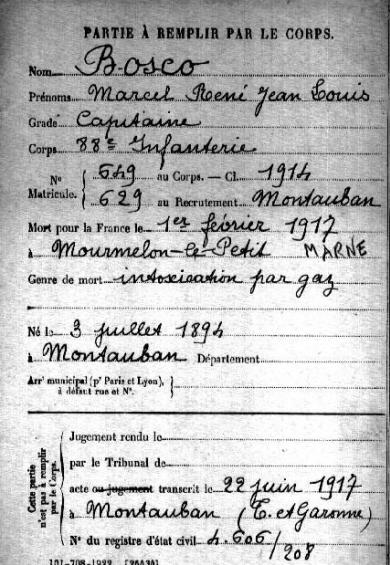 PARTIE À REMPLIR PAR LE CORPS.
Nom Bosco
Prénoms Marcel René Jean Louis
Grade Capitaine
Corps 88e Infanterie
No Matricule. { 649 au Corps. — Cl. 1914
629 au Recrutement Montauban
Mort pour la France le 1er février 1917
à Mourmelon-le-Petit MARNE
Genre de mort intoxication par gaz
Né le 3 juillet 1894
à Montauban Département
Arrt municipal (pr Paris et Lyon), à défaut rue et No. }
Cette partie n'est pas à remplir par le Corps.
Jugement rendu le
par le Tribunal de
acte ou jugement transcrit le 22 juin 1917
à Montauban (T. et Garonne)
No du registre d'état civil 4.606/208
101-708-1922. [26434]